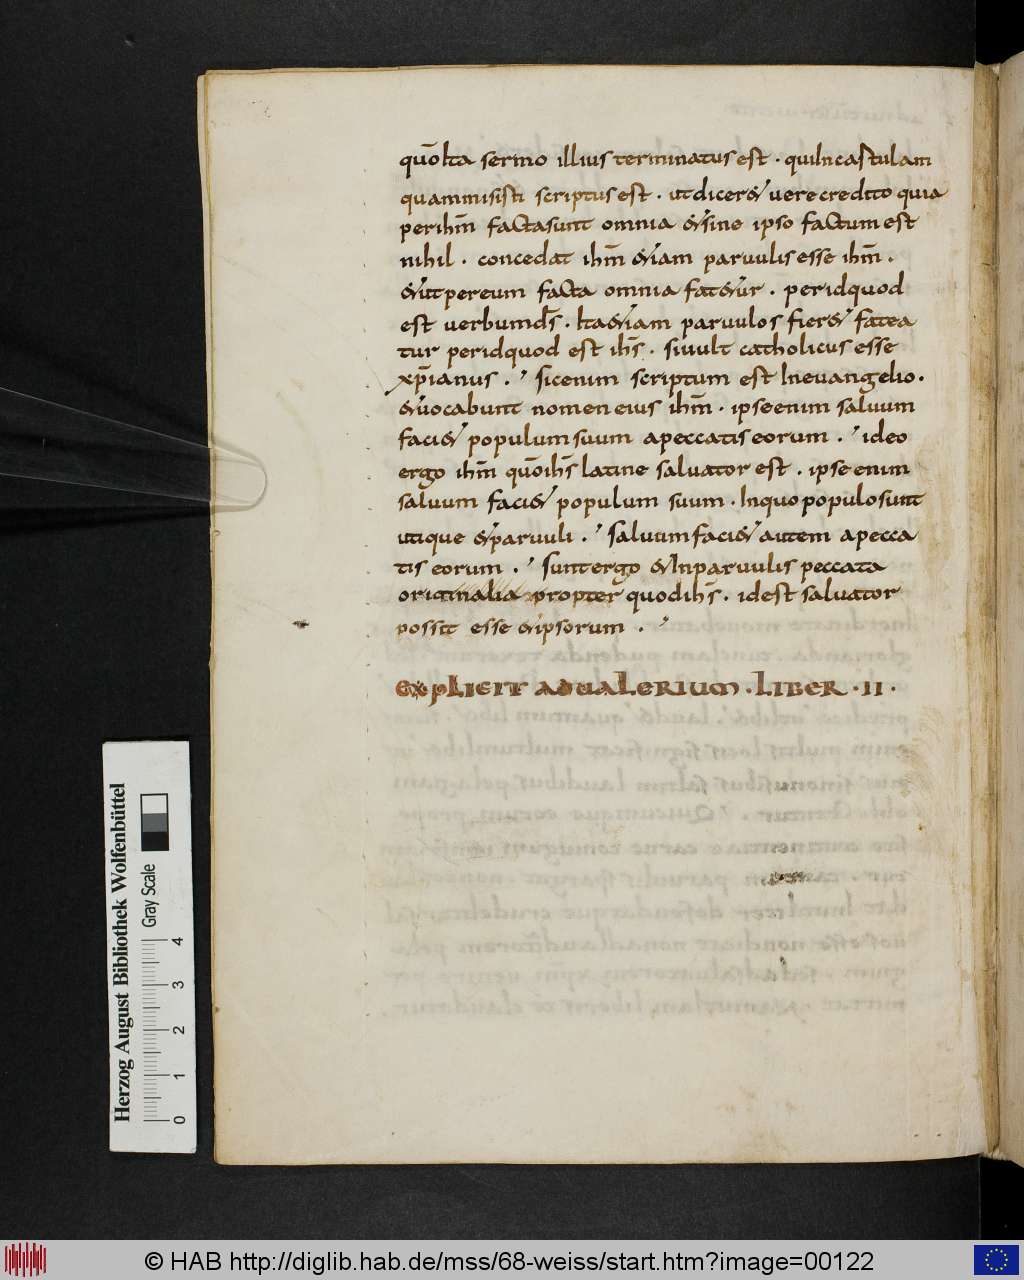 quō Ita sermo illius terminatus est · qui Incastulam
quam misisti scriptus est · ut diceret vere credito quia
per ihm̄ facta sunt omnia & sine ipso factum est
nihil · concedat ihm̄ &iam paruulis esse ihm̄ ·
& ut per eum facta omnia fat&ur · per id quod
est uerbum dī · Ita &iam paruulos fier& fatea
tur per id quod est ihs̄ · si uult catholicus esse
xp̄ianus · ’ sic enim scriptum est In euangelio ·
& uocabunt nomen eius ihm̄ · ipse enim saluum
faci& populum suum a peccatis eorum · ’ ideo
ergo ihm̄ quō ihs̄ latine saluator est · ipse enim
saluum faci& populum suum · In quo populo sunt
utique & paruuli · ’ saluum faci& autem a pecca
tis eorum · ’ sunt ergo & In paruulis peccata
originalia propter quod ihs̄ · id est saluator
possit esse & ipsorum · ’
EXPLICIT AD UALERIUM · LIBER · II ·
Herzog August Bibliothek Wolfenbüttel
Gray Scale
0 1 2 3 4
© HAB http://diglib.hab.de/mss/68-weiss/start.htm?image=00122